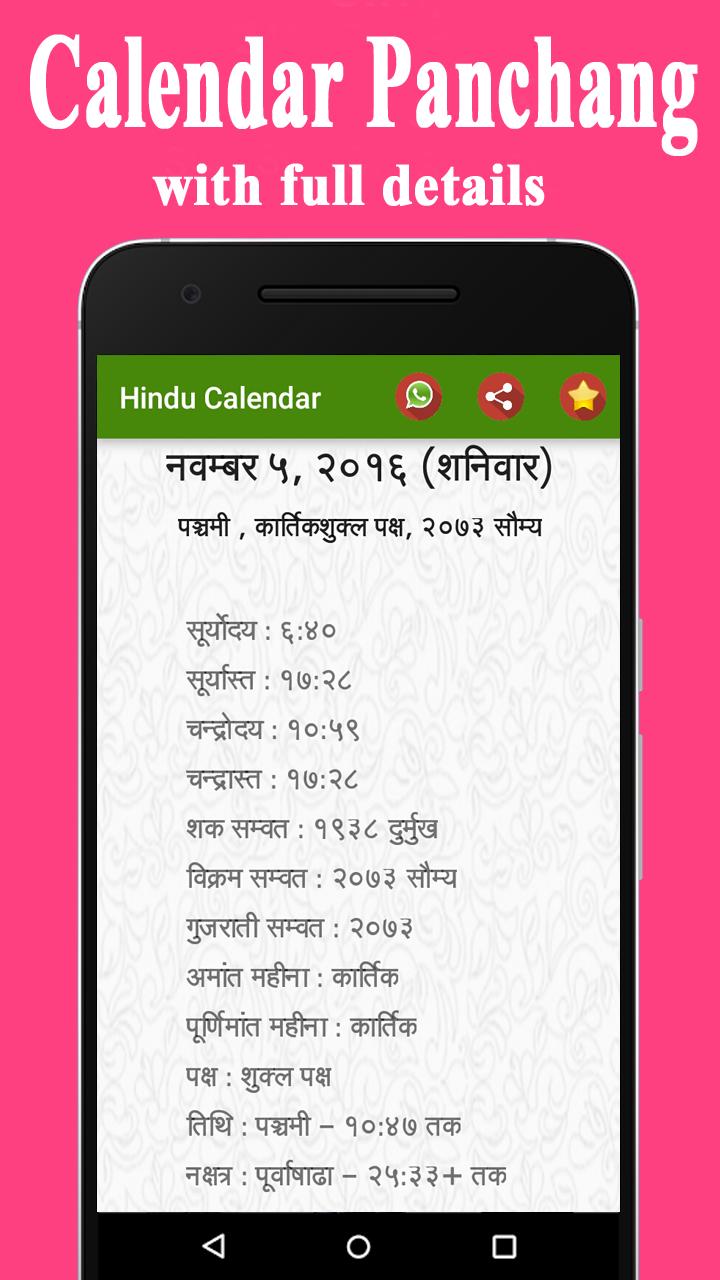 Calendar Panchang
with full details
Hindu Calendar
नवम्बर ५, २०१६ (शनिवार)
पञ्चमी , कार्तिकशुक्ल पक्ष, २०७३ सौम्य
सूर्योदय : ६:४०
सूर्यास्त : १७:२८
चन्द्रोदय : १०:५९
चन्द्रास्त : १७:२८
शक सम्वत : १९३८ दुर्मुख
विक्रम सम्वत : २०७३ सौम्य
गुजराती सम्वत : २०७३
अमांत महीना : कार्तिक
पूर्णिमांत महीना : कार्तिक
पक्ष : शुक्ल पक्ष
तिथि : पञ्चमी – १०:४७ तक
नक्षत्र : पूर्वाषाढा – २५:३३+ तक